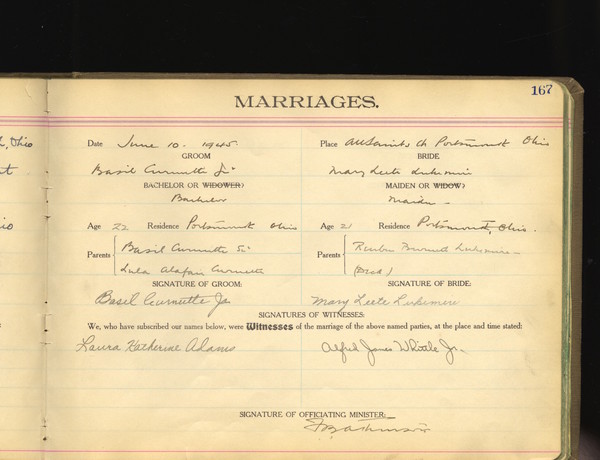 167
MARRIAGES.
Ohio
Date June 10. 1945. Place All Saints Ch Portsmouth Ohio
GROOM BRIDE
Basil Curnutte Jr. Mary Leete
BACHELOR OR WIDOWER? MAIDEN OR WIDOW?
Bachelor Maiden
Age 22 Residence Portsmouth Ohio Age 21 Residence Portsmouth, Ohio.
Parents Basil Curnutte Sr. Parents
Lula Curnutte (Decd)
SIGNATURE OF GROOM: SIGNATURE OF BRIDE:
Basil Curnutte Jr Mary Leete
SIGNATURES OF WITNESSES:
We, who have subscribed our names below, were Witnesses of the marriage of the above named parties, at the place and time stated:
Laura Katherine Adams Alfred James Whittle Jr.
SIGNATURE OF OFFICIATING MINISTER: